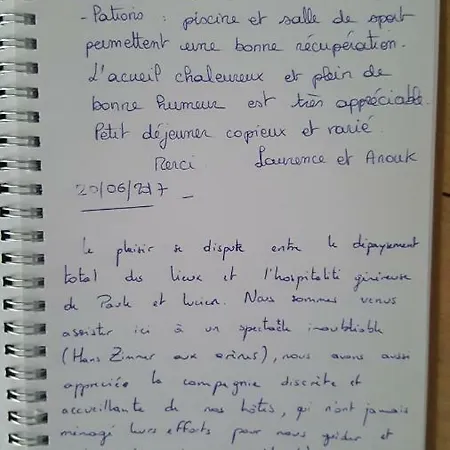 - Patios : piscine et salle de sport
permettent une bonne récupération.
L'acueil chaleureux et plein de
bonne humeur est très appréciable.
Petit déjeuner copieux et varié.
Merci. Laurence et Anouk
20/06/217
Le plaisir se dispute entre le dépaysement
total des lieux et l'hospitalité généreuse
de Paule et Lucien. Nous sommes venus
assister ici à un spectacle inoubliable
(Hans Zimmer aux arènes), nous avons aussi
appréciée la compagnie discrète et
accueillante de nos hôtes, qui n'ont jamais
ménagé leurs efforts pour nous guider et